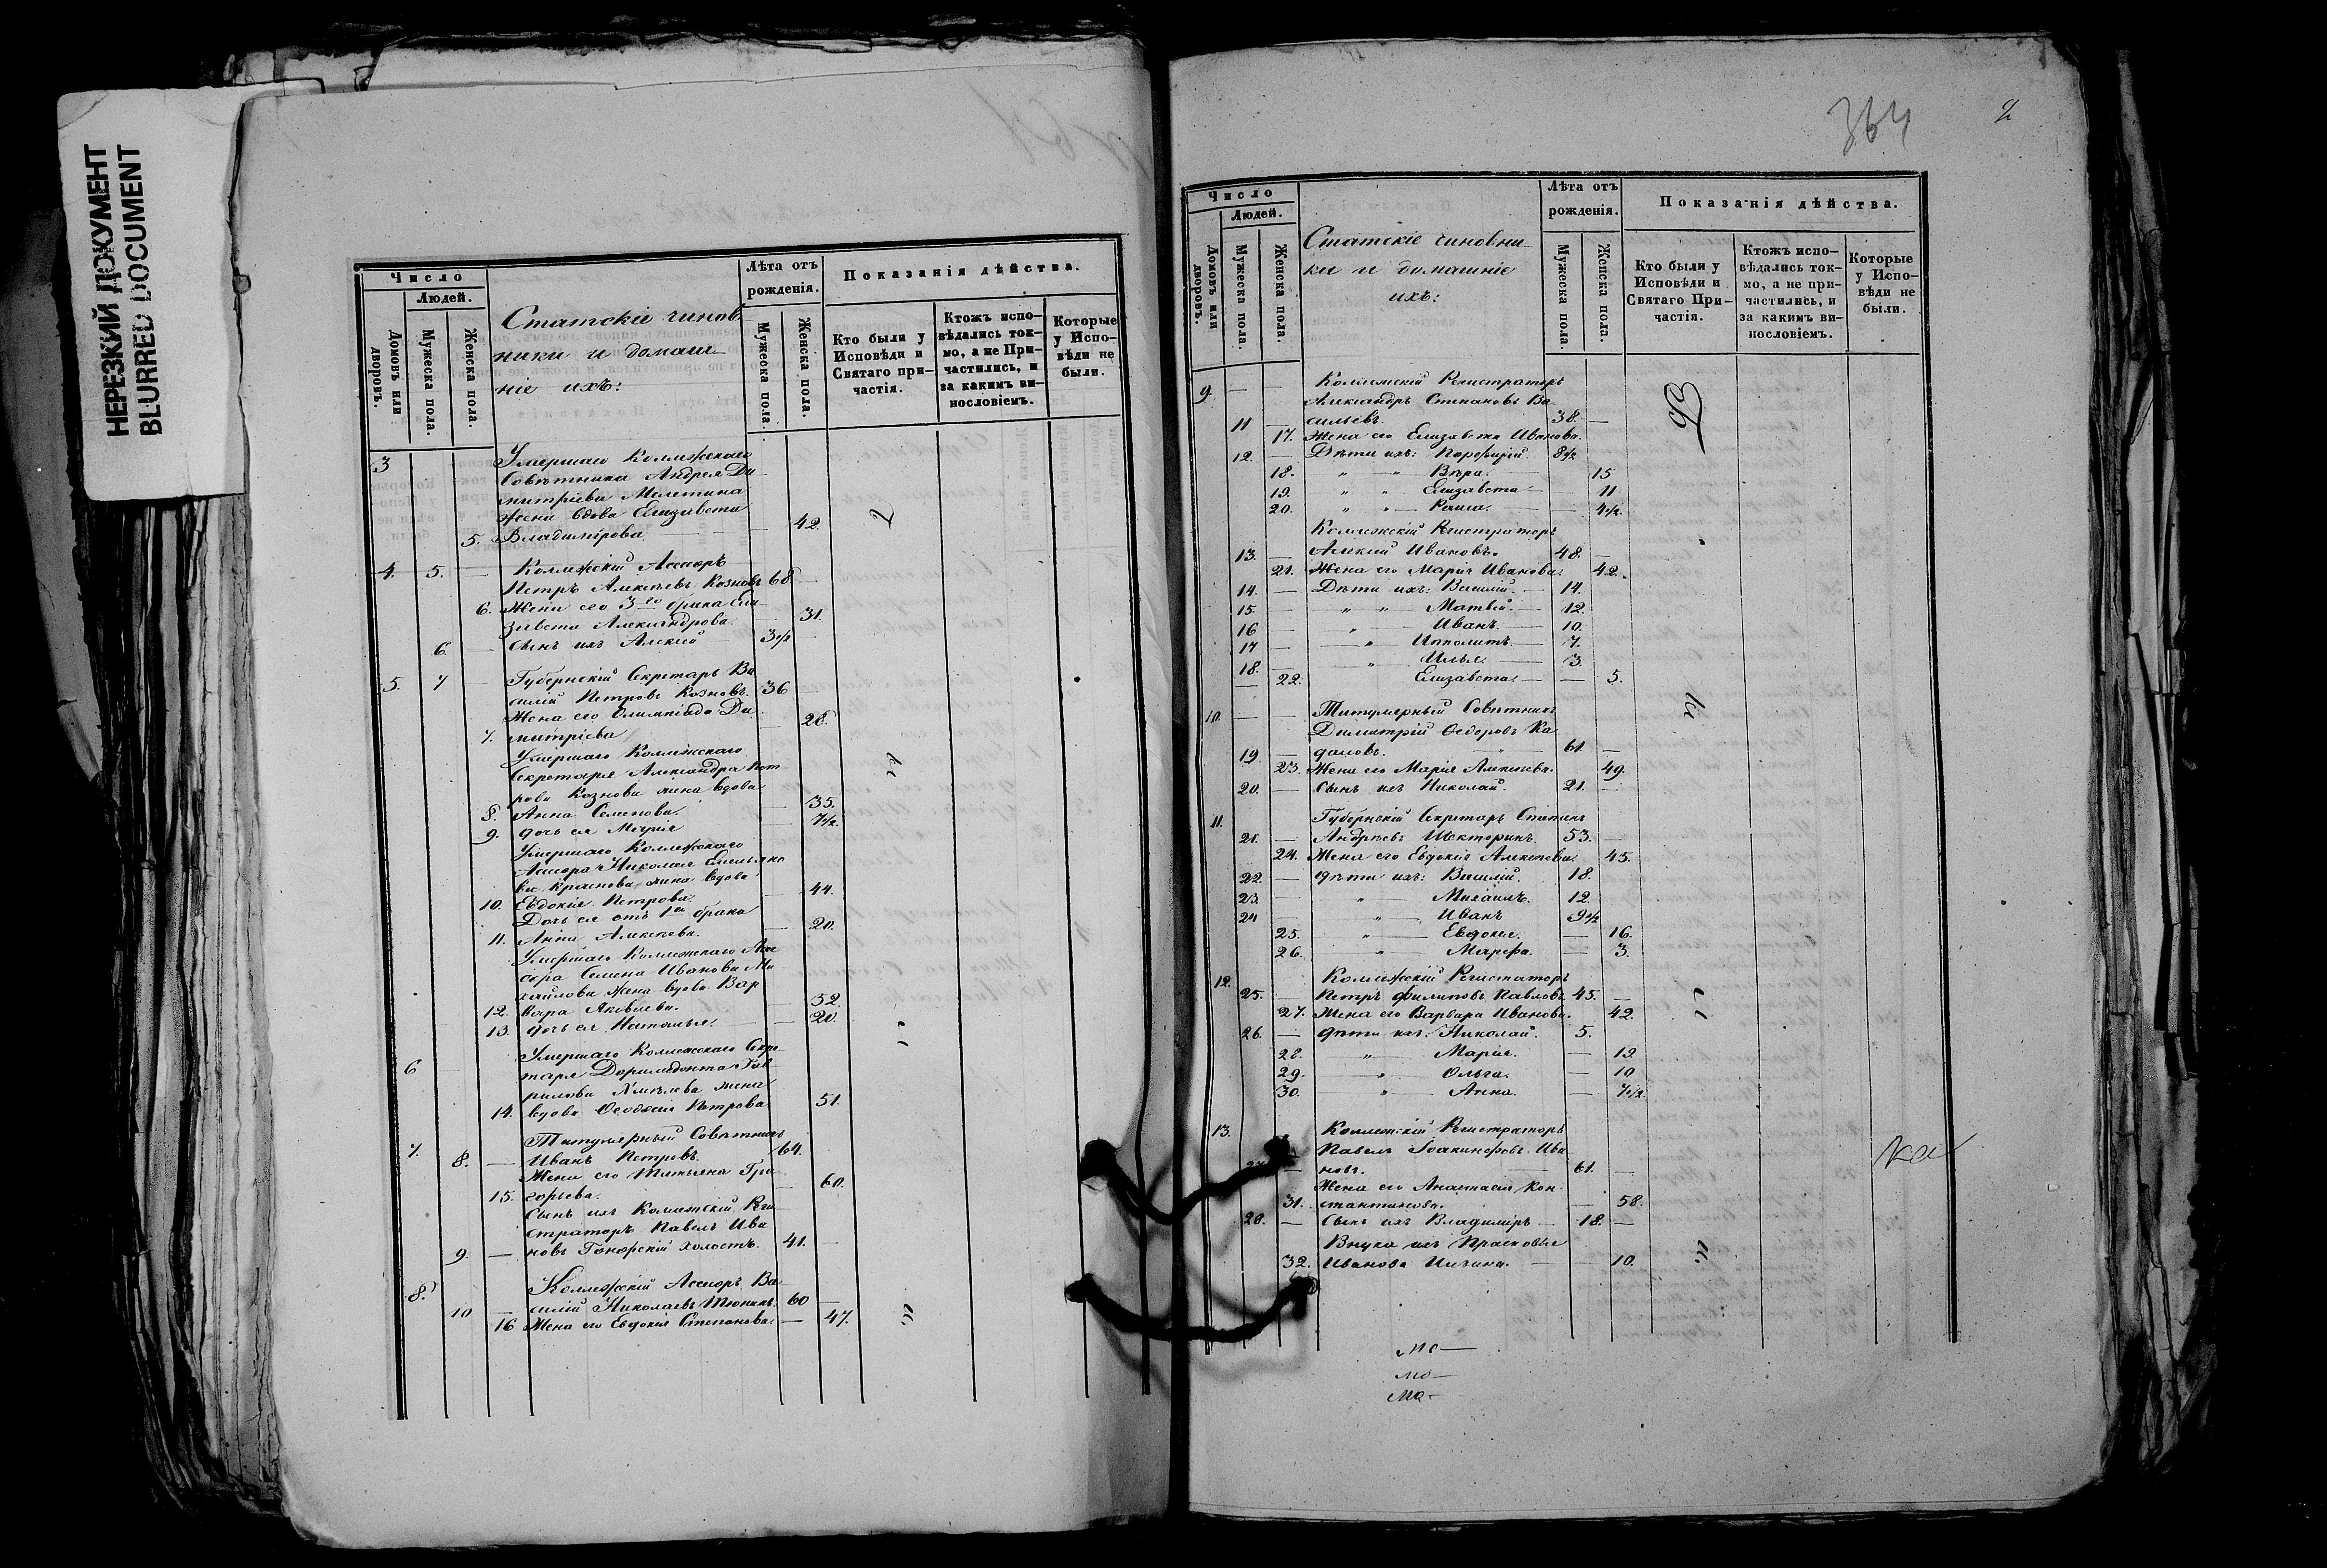 НЕРЕЗКИЙ ДОКУМЕНТ
BLURRED DOCUMENT
Число
Людей.
Домовъ или дворовъ.
Мужеска пола.
Женска пола.
Статскіе чинов
ники и домаш
ніе ихъ:
Лѣта отъ рожденія.
Мужеска пола.
Женска пола.
Показанія дѣйства.
Кто были у Исповѣди и Святаго причастія.
Ктожъ исповѣдались токмо, а не Причастились, и за какимъ винословіемъ.
Которые у Исповѣди не были.
3 Умершаго Коллежскаго
Совѣтника Андрея Ди
митріева Мелетина
жена вдова Елизавета
5. Владимірова 42.
4. 5. — Коллежскій Ассесоръ
Петръ Алексѣевъ Козновъ 68.
6. Жена его 3го брака Ели
завета Александрова. 31.
6. Сынъ ихъ Алексій 3 1/2
5. 7 — Губернскій Секретарь Ва
силій Петровъ Козновъ. 36 —
Жена его Олимпіада Ди 28.
7. митріева
Умершаго Коллежскаго
Секретаря Александра Пет
рова Кознова жена вдова
8. Анна Семенова. 35.
9. дочь ея Марія 7 1/2.
Умершаго Коллежскаго
Ассесора Николая Емельяно
ва Краснова жена вдова
10. Евдокія Петрова. 44.
Дочь ея отъ 1го брака
11. Анна Алексѣева. — 20.
Умершаго Коллежскаго Асе
сора Семена Иванова Ми
хайлова жена вдова Вар
12. вара Яковлева. 52.
13. дочь ея Наталья. — 20.
6 Умершаго Коллежскаго Секре
таря Доримедонта Гав
рилова Хмѣлева жена
14. вдова Ѳеодосія Петрова 51.
7. Титулярный Совѣтникъ
8. — Иванъ Петровъ. 64.
Жена его Татьяна Гри
15. горьева. 60.
Сынъ ихъ Коллежскій Реги
страторъ Павелъ Ива
9. — новъ Гонорскій холостъ. 41. —
8. Коллежскій Ассесоръ Ва
10 — силій Николаевъ Тюнинъ. 60 —
16 Жена его Евдокія Степанова. — 47.
364
2
Число
Людей.
Домовъ или дворовъ.
Мужеска пола.
Женска пола.
Статскіе чиновни
ки и домашніе
ихъ:
Лѣта отъ рожденія.
Мужеска пола.
Женска пола.
Показанія дѣйства.
Кто были у Исповѣди и Святаго Причастія.
Ктожъ исповѣдались токмо, а не причастились, и за какимъ винословіемъ.
Которые у Исповѣди не были.
9. — Коллежскій Регистраторъ
Александръ Степановъ Ва
11 — сильевъ. 38. —
17. Жена его Елизавета Иванова.
12. — Дѣти ихъ: Порфирій. 8 1/2
18. " " Вѣра. 15
19. " " Елизавета — 11
20. " " — Раиса. — 4 1/2.
Коллежскій Регистраторъ
13. — Алексій Ивановъ. 48. —
21. Жена его Марія Иванова. 42.
14. — Дѣти ихъ: Василій. — 14.
15. — " " Матвѣй. — 12.
16 — " — Иванъ. — 10.
17 — " Ипполитъ. — 7.
18. — " Илья. — 3.
22. Елизавета. — — 5.
10. — — Титулярный Совѣтникъ
Димитрій Ѳедоровъ Ка
19 — даловъ. 61. —
23. Жена его Марія Алексѣева. 49.
20. — Сынъ ихъ Николай. 21. —
11. Губернскій Секретарь Степанъ
21. — Андрѣевъ Шекторинъ. 53. —
24. Жена его Евдокія Алексѣева. 45.
22 — дѣти ихъ: Василій. 18.
23 — " — Михаилъ. 12.
24 — " — Иванъ 9 1/2
25. " — Евдокія. — 16.
26. " — Марѳа. — 3.
12. Коллежскій Регистраторъ
25. — Петръ Филиповъ Павловъ. 45. —
27. Жена его Варвара Иванова. 42.
26. — дѣти ихъ: Николай. 5.
28. " — Марія. — 19.
29. " — Ольга. — 10
30. " — Анна. — 7 1/2.
13. Коллежскій Регистраторъ
Павелъ Іоакинфовъ Ива
27 — новъ. 61. —
Жена его Анастасія Кон
31. стантинова. — 58.
28. — Сынъ ихъ Владиміръ — 18. —
Внука ихъ Прасковья
32. Иванова — 10.
ка